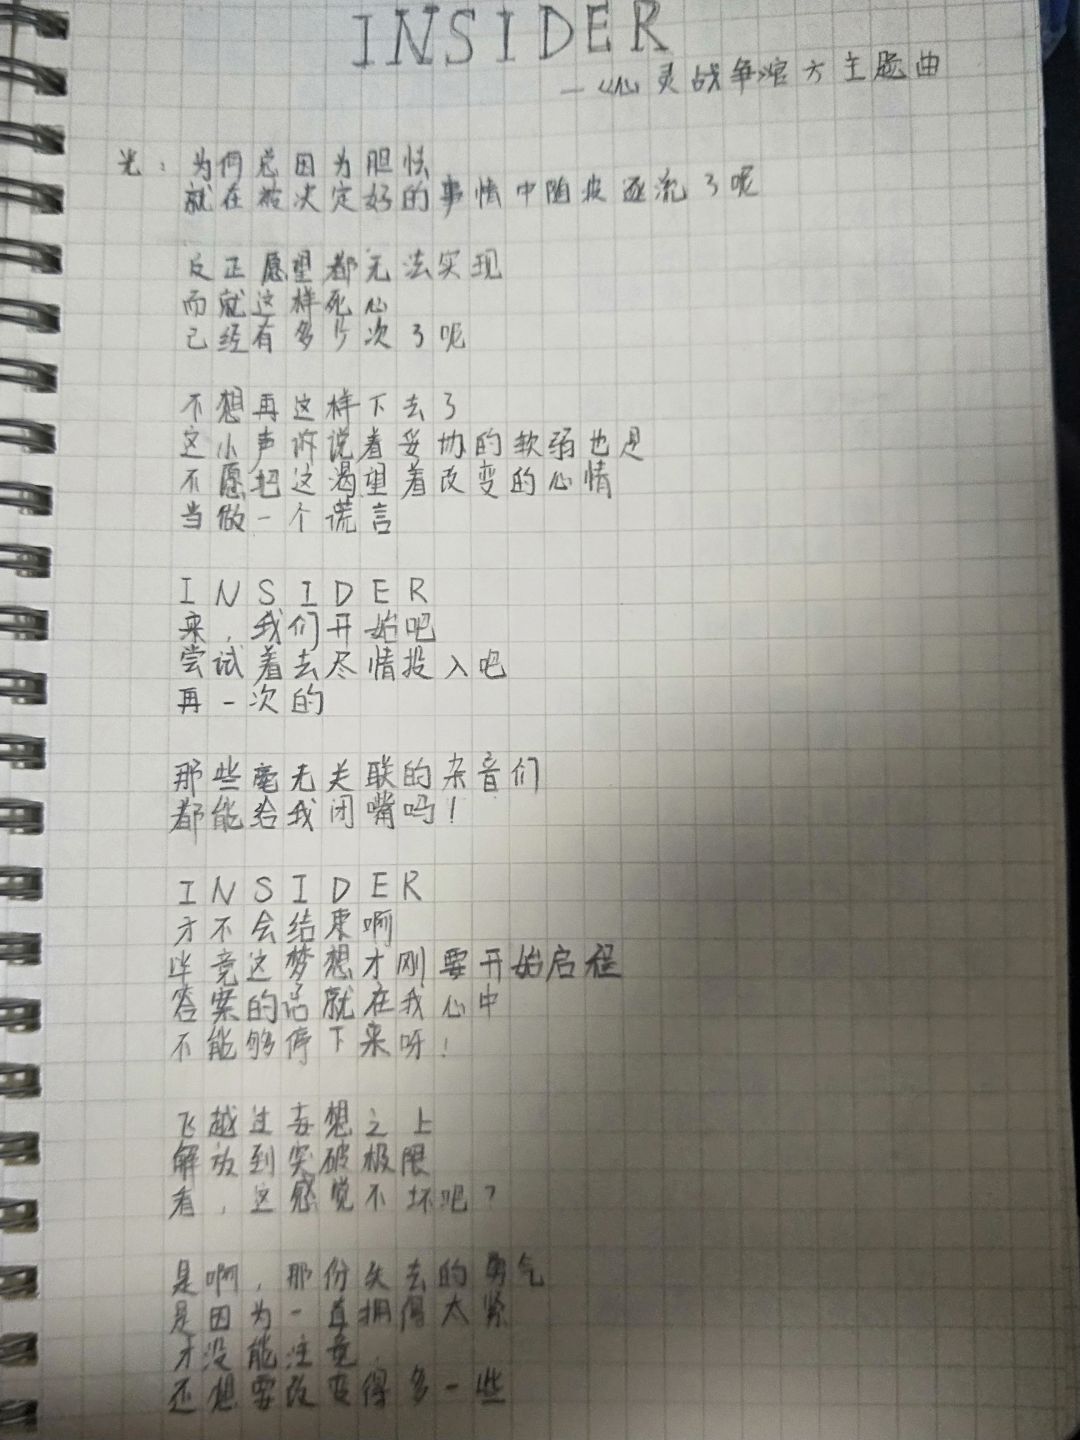 INSIDER
—《心灵战争》官方主题曲
光：为何总因为胆怯
就在被决定好的事情中随波逐流了呢
反正愿望都无法实现
而就这样死心
已经有多少次了呢
不想再这样下去了
这小声诉说着妥协的软弱也是
不愿把这渴望着改变的心情
当做一个谎言
INSIDER
来，我们开始吧
尝试着去尽情投入吧
再一次的
那些毫无关联的杂音们
都能给我闭嘴吗！
INSIDER
才不会结束啊
毕竟这梦想才刚要开始启程
答案的话就在我心中
不能够停下来呀！
飞越过妄想之上
解放到突破极限
看，这感觉不坏吧？
是啊，那份失去的勇气
是因为一直拥得太紧
才没能注意
还想要改变得多一些